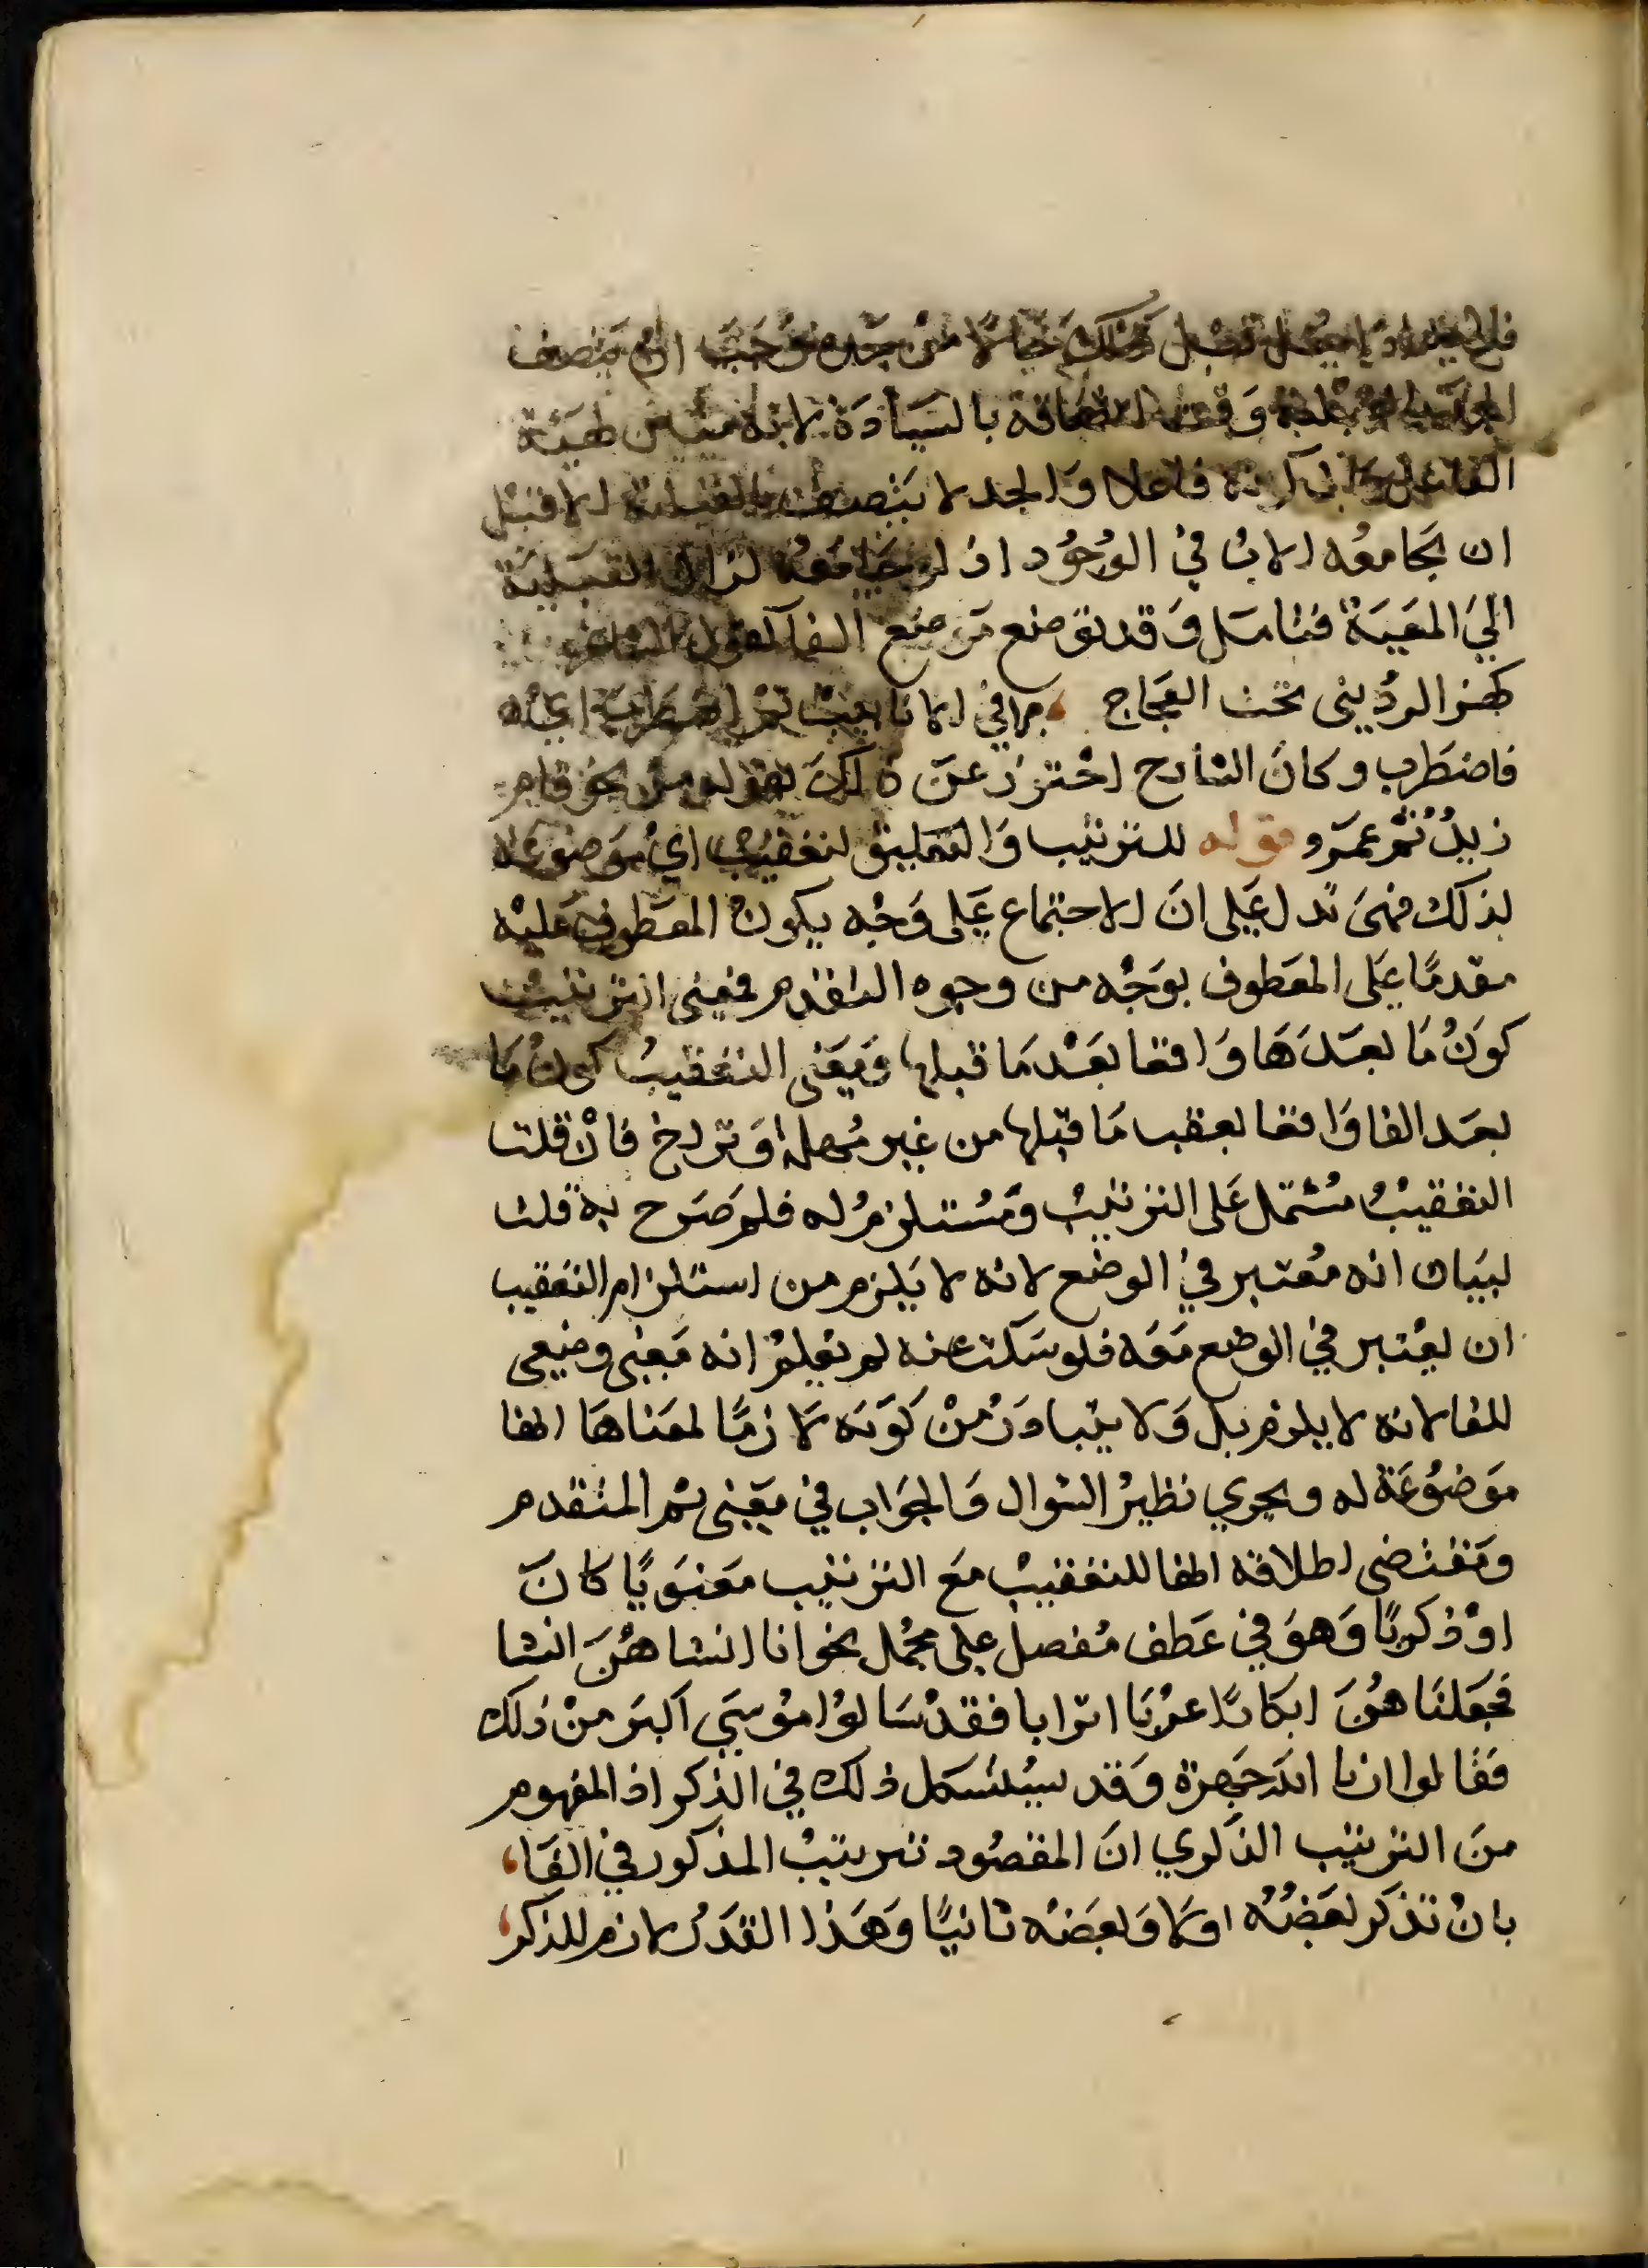 حالا من جده وجب ان يتصف
وقت اتصافه بالسيادة لانه مبين لهيئة
الفاعل حال كونه فاعلا والجد لا يتصف بالقبلية الا قبل
ان يجامعه الاب في الوجود اذ لو جامعه لزال القبلية
الي المعية فتامل وقد توضع موضع الفا كقول الشاعر
كهز الرديني تحت العجاج ، جرى في الانابيب ثم اضطرب اي
فاضطرب وكان الشارح احترز عن ذلك بقوله من نحو قام
زيد ثم عمرو قوله للترتيب والتعقيب اي موضوعة
لذلك فهي تدل على ان الاجتماع على وجه يكون المعطوف عليه
مقدما على المعطوف بوجه من وجوه التقدم فمعنى الترتيب
كون ما بعدها واقعا بعد ما قبلها ومعنى التعقيب كون ما
بعد الفا واقعا بعقب ما قبلها من غير مهلة وتراخ فان قلت
التعقيب مشتمل على الترتيب ومستلزم له فلم صرح به قلت
لبيان انه معتبر في الوضع لانه لا يلزم من استلزام التعقيب
ان يعتبر في الوضع معه فلو سكت عنه لم يعلم انه معنى وضعي
للفا لانه لا يلزم بل ولا يتبادر من كونه لازما لمعناها انها
موضوعة له ويجري نظير السوال والجواب في معنى ثم المتقدم
ومقتضى اطلاقه انها للتعقيب مع الترتيب معنويا كان
او ذكريا وهو في عطف مفصل على مجمل نحو انا انشاهن انشا
فجعلناهن ابكارا عربا اترابا فقد سالوا موسي اكبر من ذلك
فقالوا ارنا الله جهرة وقد يستشكل ذلك في الذكر اذ المفهوم
من الترتيب الذكري ان المقصود ترتيب المذكور في الفا،
بان تذكر بعضه اولا وبعضه ثانيا وهذا القدر لازم للذكر،